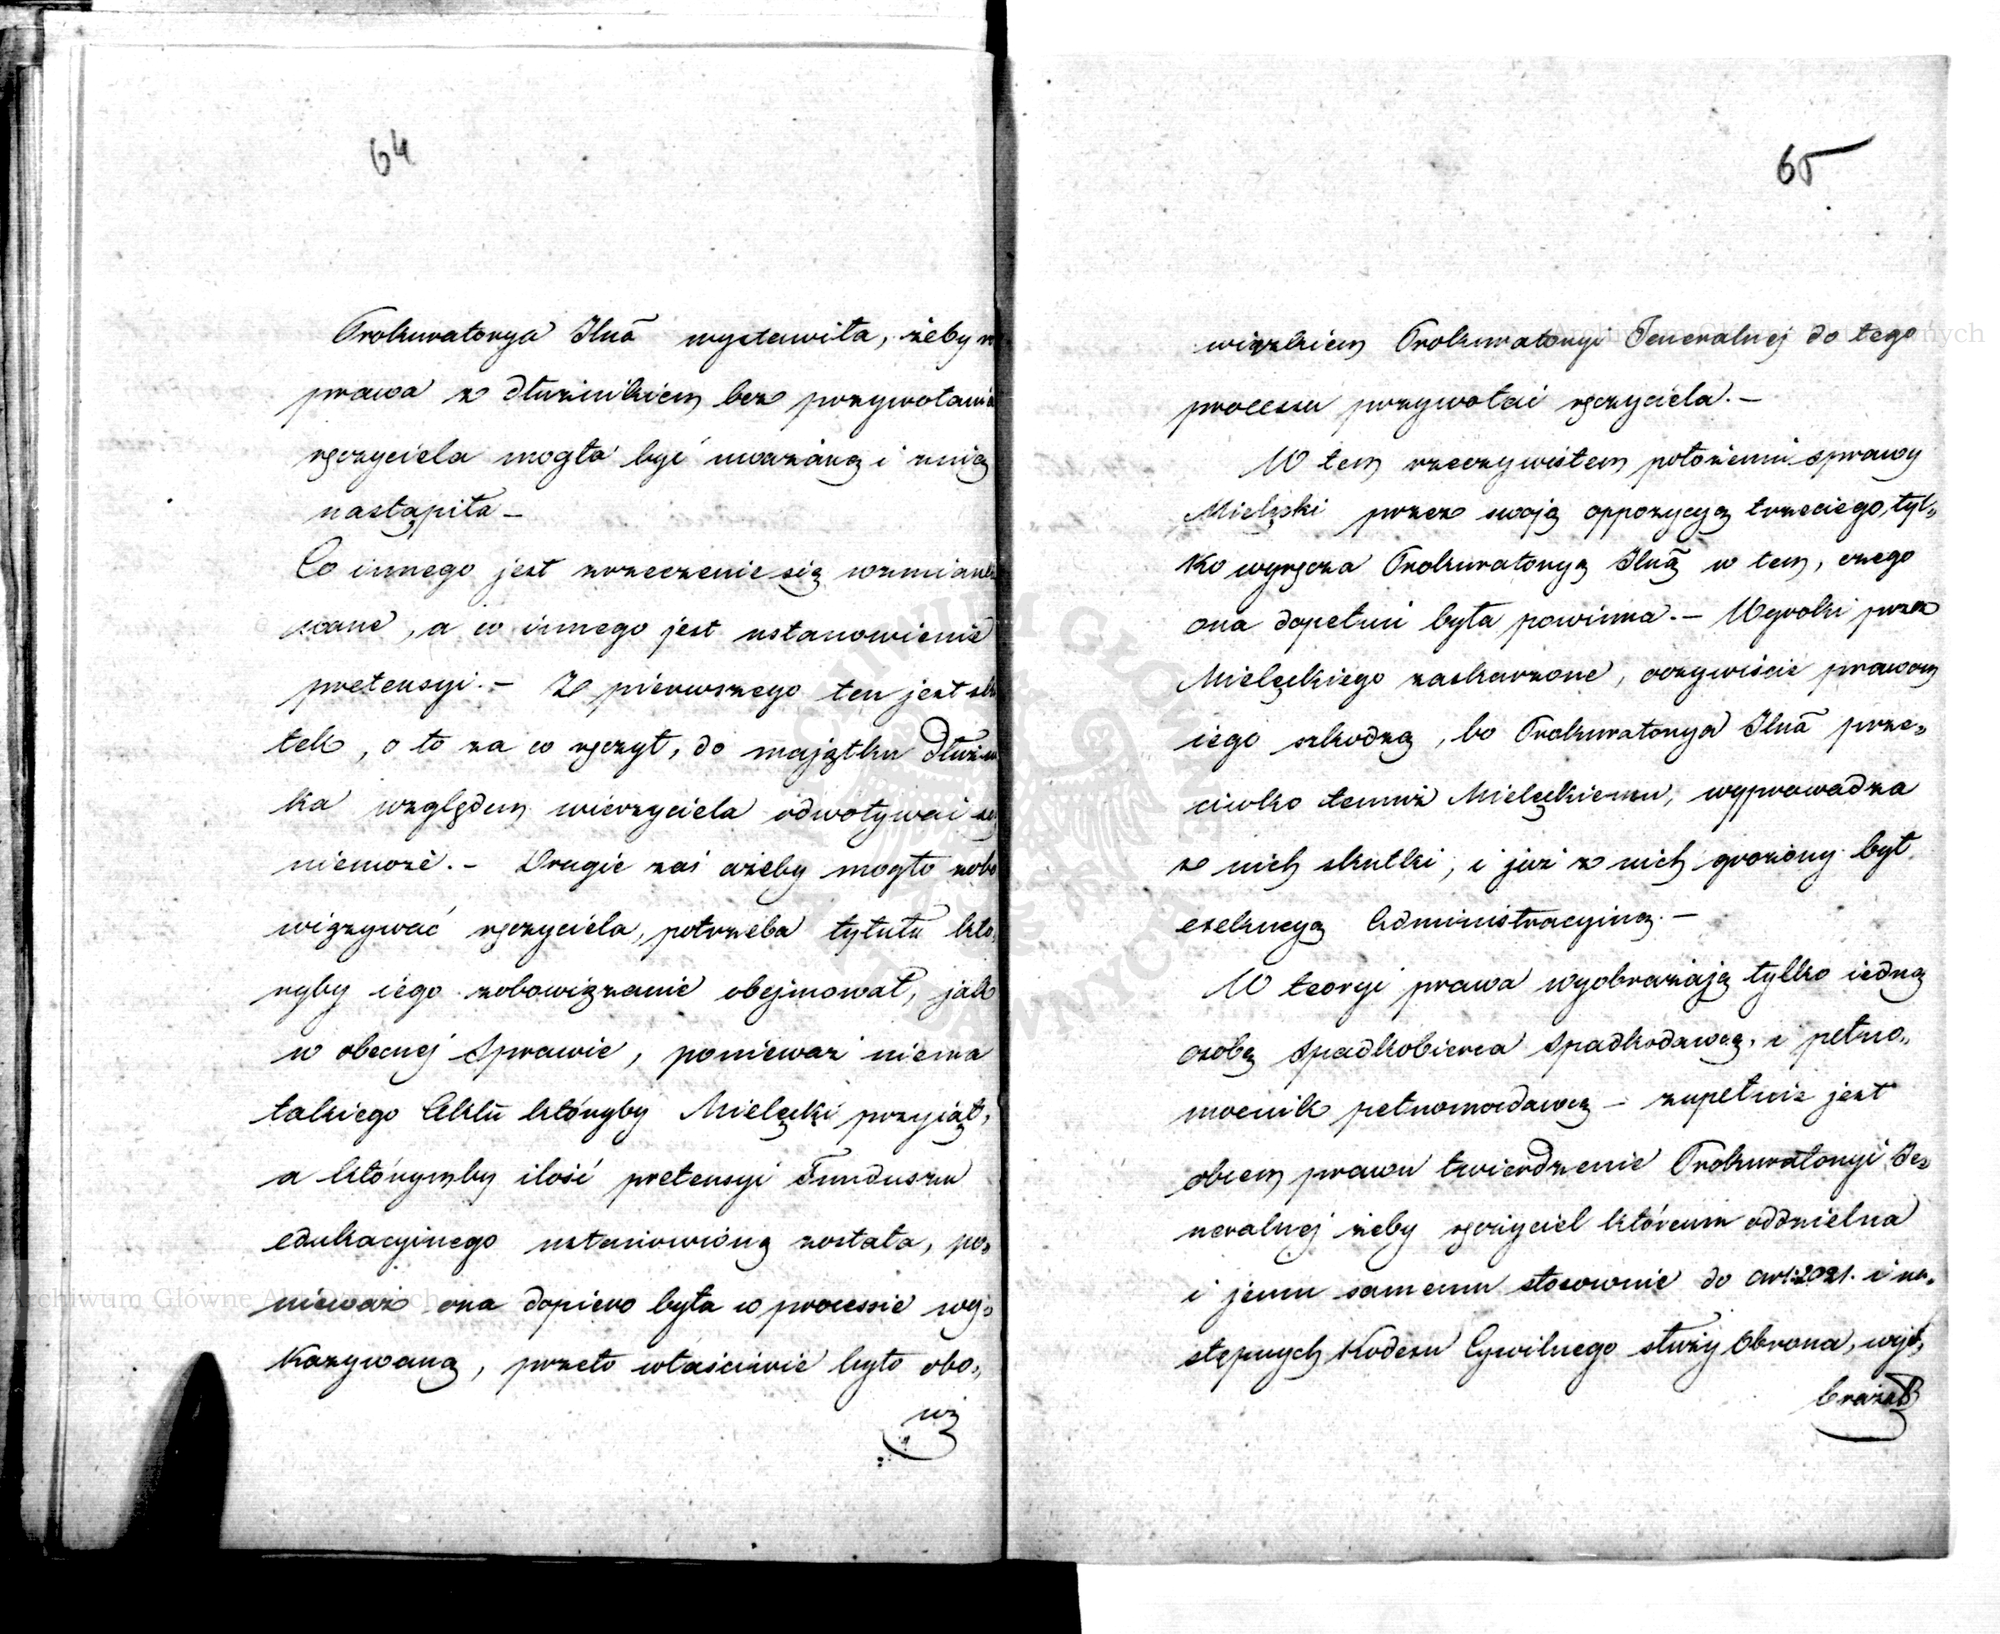 64
Prokuratorya Jlna wystawiła, żeby
prawa z dłużnikiem bez przywołania
ręczyciela mogła być uważaną i z nią
nastąpiła –
Co innego jest zrzeczenie się wzmianko
wane, a co innego jest ustanowienie
pretensyi. – Z pierwszego ten jest sku
tek, o to za co ręczył, do majątku dłużni
ka względem wierzyciela odwoływać się
niemoże. – Drugie zaś ażeby mogło zobo
wiązywać ręczyciela, potrzeba tytułu któ
ryby iego zobowiązanie obejmował, jak
w obecnej Sprawie, ponieważ niema
takiego Aktu któryby Mielęcki przyiął,
a którymby ilość pretensyi Funduszu
edukacyinego ustanowioną została, po„
nieważ ona dopiero była w processie wy„
kazywaną, przeto właściwie było obo„
wią
65
wiązkiem Prokuratoryi Generalnej do tego
processu przywołać ręczyciela. –
W tem rzeczywistem położeniu sprawy
Mielęcki przez swoją oppozycyą trzeciego, tyl„
ko wyręcza Prokuratoryą Jlną w tem, czego
ona dopełnić była powinna. – Wyroki przez
Mielęckiego zaskarzone, oczywiście prawom
iego szkodzą, bo Prokuratorya Jlna prze„
ciwko temuż Mielęckiemu, wyprowadza
z nich skutki, i już z nich grożony był
exekucyą Administracyiną. –
W teoryi prawa wyobrażają tylko iedną
osobę Spadkobierca Spadkodawcę, i pełno„
mocnik pełnomocdawcę – zupełnie jest
obcem prawu twierdzenie Prokuratoryi Ge„
neralnej żeby ręczyciel któremu oddzielna
i jemu samemu stosownie do Art: 2021. i na„
stępnych Kodexu Cywilnego służy Obrona, wyo„
brażał
Archiwum Główne Akt Dawnych
Archiwum Główne Akt Dawnych
ARCHIWUM GŁÓWNE AKT DAWNYCH